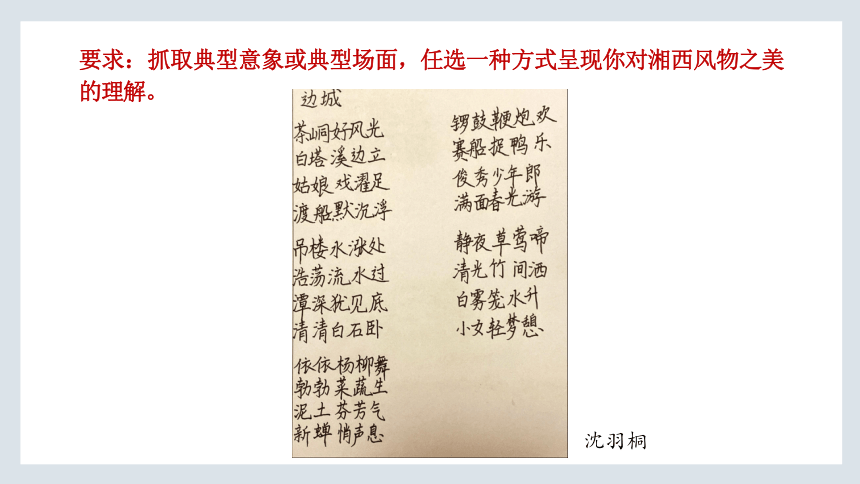 要求：抓取典型意象或典型场面，任选一种方式呈现你对湘西风物之美
的理解。
边城
茶峒好风光
白塔溪边立
姑娘戏濯足
渡船默沉浮
吊楼水涨处
浩荡流水过
潭深犹见底
清清白石卧
依依杨柳舞
勃勃菜蔬生
泥土芬芳气
新蝉悄声息
锣鼓鞭炮欢
赛船捉鸭乐
俊秀少年郎
满面春光游
静夜草莺啼
清光竹间洒
白雾笼水升
小女轻梦憩
沈羽桐